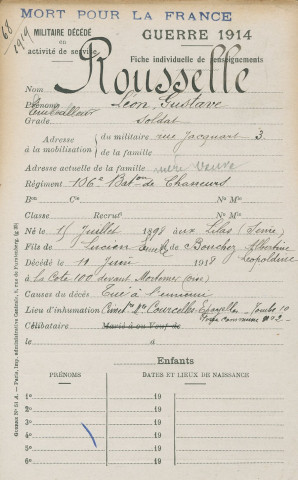 MORT POUR LA FRANCE
68/1919
MILITAIRE DÉCÉDÉ
en
activité de service
GUERRE 1914
Fiche individuelle de renseignements
Nom Rousselle
Prénoms Léon Gustave
Grade Soldat
Adresse à la mobilisation du militaire rue Jacquart 3.
de la famille
Adresse actuelle de la famille mère veuve
Régiment 106e Baton de Chasseurs
Bon Cie No Mle
Classe Recrut No Mle
Né le 15 Juillet 1898 aux Lilas (Seine)
Fils de Lucien et de Bouchez Albertine
Léopoldine
Décédé le 11 Juin 1918
à la Cote 100 devant Mortemer (Oise)
Causes du décès Tué à l'ennemi
Lieu d'inhumation Courcelles Epayelles Tombe 10
Célibataire Marié à ou Veuf de
le à
Enfants
PRÉNOMS DATES ET LIEUX DE NAISSANCE
1o 19
2o 19
3o 19
4o 19
5o 19
6o 19